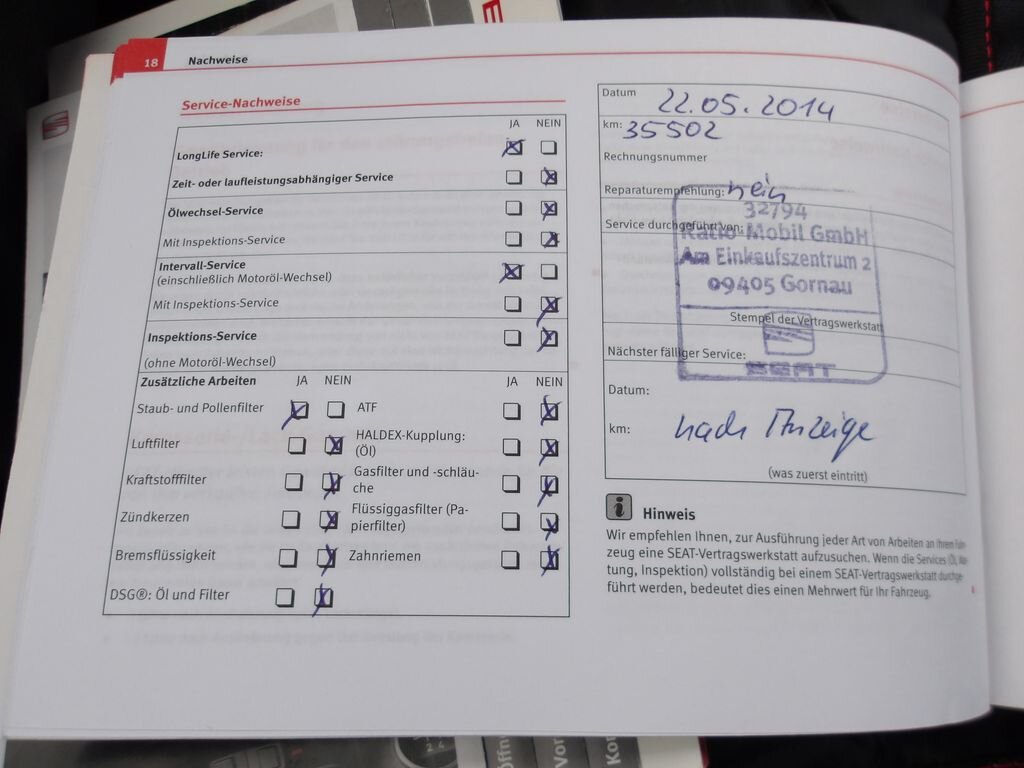 18 Nachweise
Service-Nachweise
JA NEIN
LongLife Service:
Zeit- oder laufleistungsabhängiger Service
Ölwechsel-Service
Mit Inspektions-Service
Intervall-Service
(einschließlich Motoröl-Wechsel)
Mit Inspektions-Service
Inspektions-Service
(ohne Motoröl-Wechsel)
Zusätzliche Arbeiten JA NEIN JA NEIN
Staub- und Pollenfilter ATF
Luftfilter HALDEX-Kupplung:
(Öl)
Kraftstofffilter Gasfilter und -schläu-
che
Zündkerzen Flüssiggasfilter (Pa-
pierfilter)
Bremsflüssigkeit Zahnriemen
DSG®: Öl und Filter
Datum 22.05.2014
km: 35502
Rechnungsnummer
Reparaturempfehlung: nein
32794
Service durchgeführt von:
Ratio-Mobil GmbH
Am Einkaufszentrum 2
09405 Gornau
Stempel der Vertragswerkstatt
Nächster fälliger Service:
SEAT
Datum:
km: nach Anzeige
(was zuerst eintritt)
i Hinweis
Wir empfehlen Ihnen, zur Ausführung jeder Art von Arbeiten an Ihrem Fahr-
zeug eine SEAT-Vertragswerkstatt aufzusuchen. Wenn die Services (Öl, War-
tung, Inspektion) vollständig bei einem SEAT-Vertragswerkstatt durchge-
führt werden, bedeutet dies einen Mehrwert für Ihr Fahrzeug.